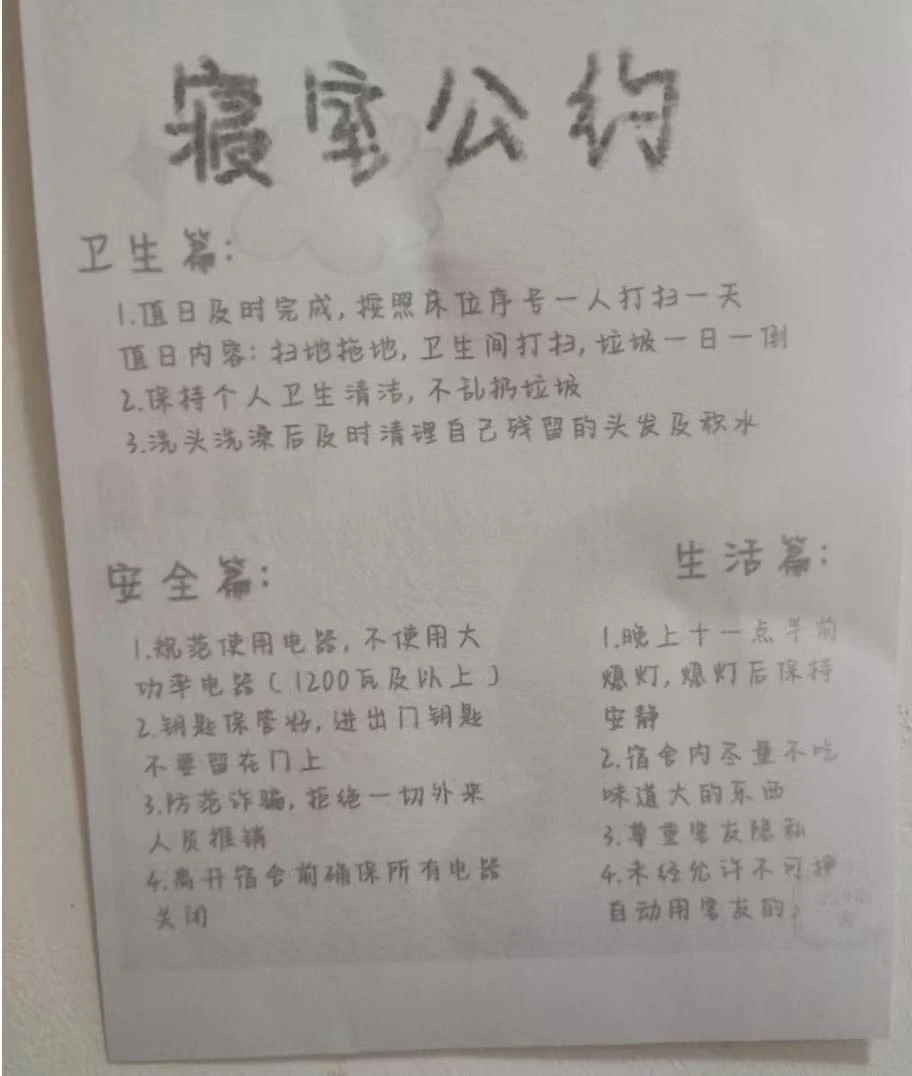 寝室公约
卫生篇:
1.值日及时完成,按照床位序号一人打扫一天
值日内容:扫地拖地,卫生间打扫,垃圾一日一倒
2.保持个人卫生清洁,不乱扔垃圾
3.洗头洗澡后及时清理自己残留的头发及积水
安全篇:
1.规范使用电器,不使用大
功率电器(1200瓦及以上)
2.钥匙保管好,进出门钥匙
不要留在门上
3.防范诈骗,拒绝一切外来
人员推销
4.离开宿舍前确保所有电器
关闭
生活篇:
1.晚上十一点半前
熄灯,熄灯后保持
安静
2.宿舍内尽量不吃
味道大的东西
3.尊重室友隐私
4.未经允许不可擅
自动用室友的